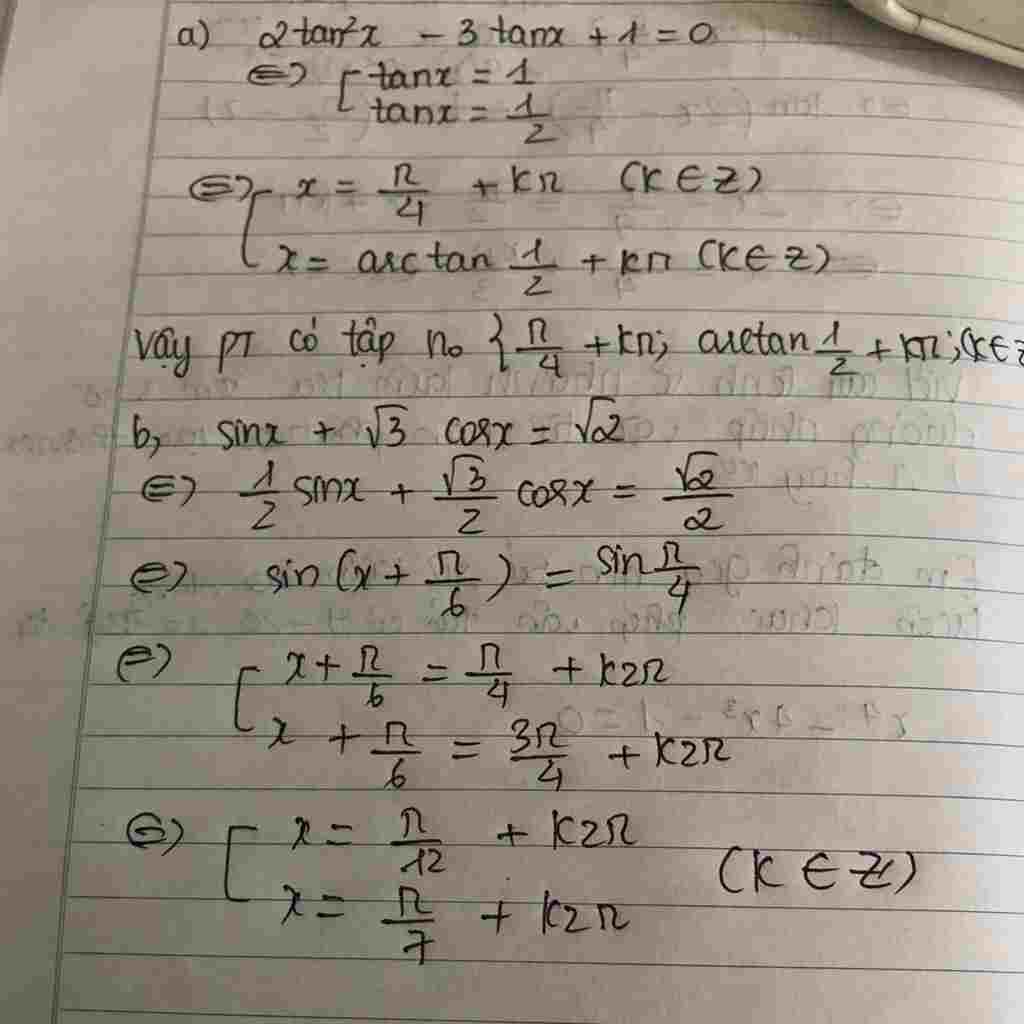 a) 2tan²x - 3tanx + 1 = 0
⇔ [ tanx = 1
tanx = 1/2
⇔ [ x = π/4 + kπ (k ∈ Z)
x = arctan 1/2 + kπ (k ∈ Z)
Vậy PT có tập n₀ {π/4 + kπ; arctan 1/2 + kπ; (k ∈ Z
b, sinx + √3 cosx = √2
⇔ 1/2 sinx + √3/2 cosx = √2/2
⇔ sin(x + π/6) = sin π/4
⇔ [ x + π/6 = π/4 + k2π
x + π/6 = 3π/4 + k2π
⇔ [ x = π/12 + k2π
(k ∈ Z)
x = π/7 + k2π